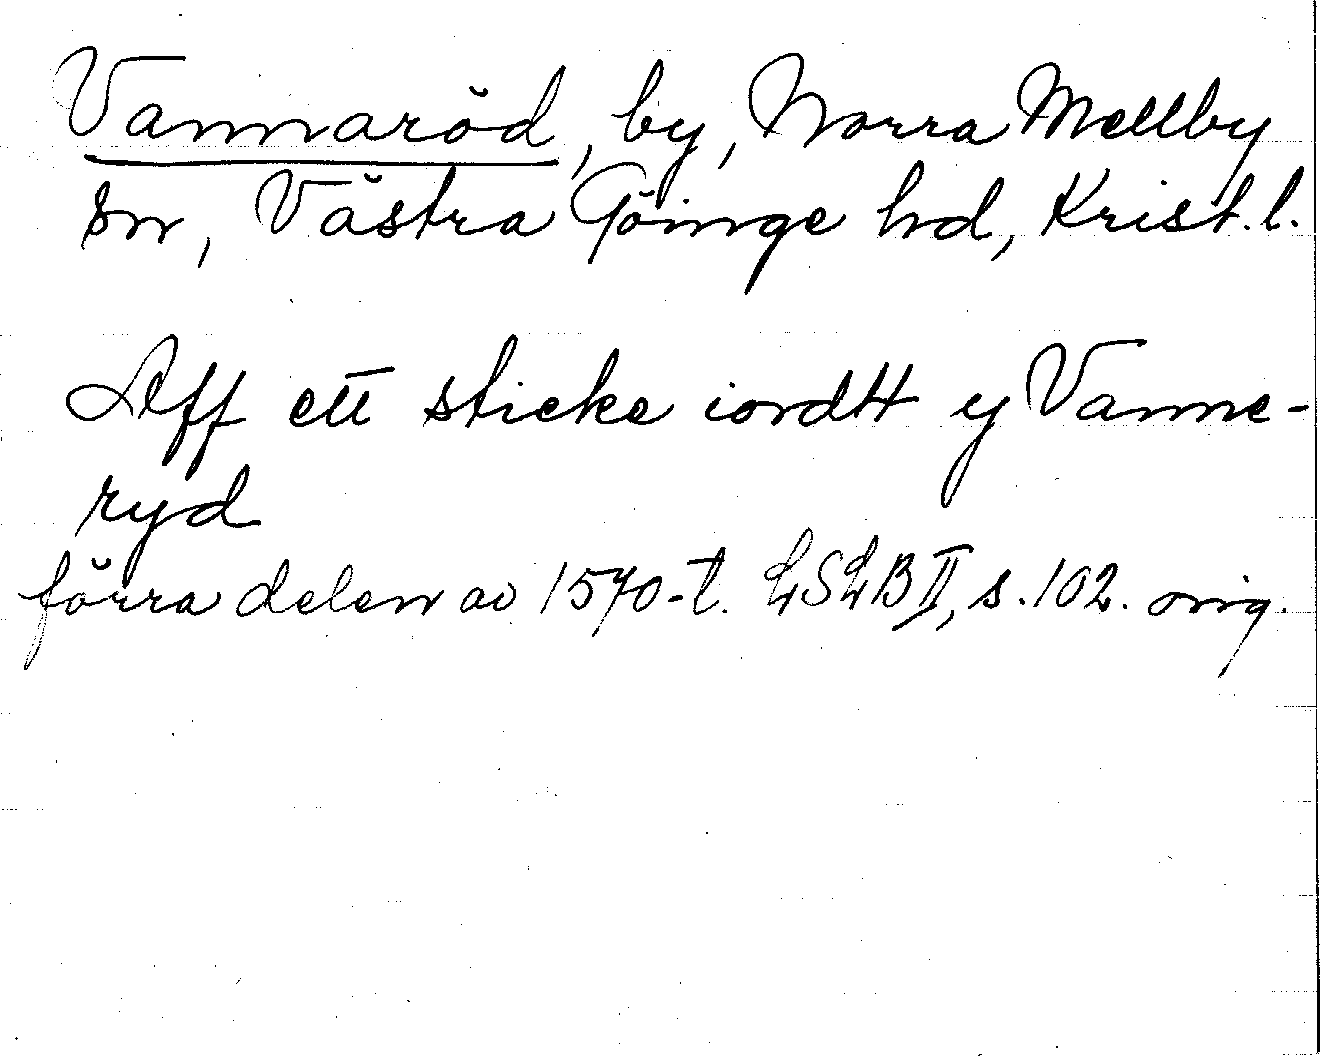 Vannaröd, by, Norra Mellby
sn, Västra Göinge hd, Krist. l.
Aff ett sticke iordtt y Vanne-
ryd
förra delen av 1570-t. LSLB II, s. 102. orig.